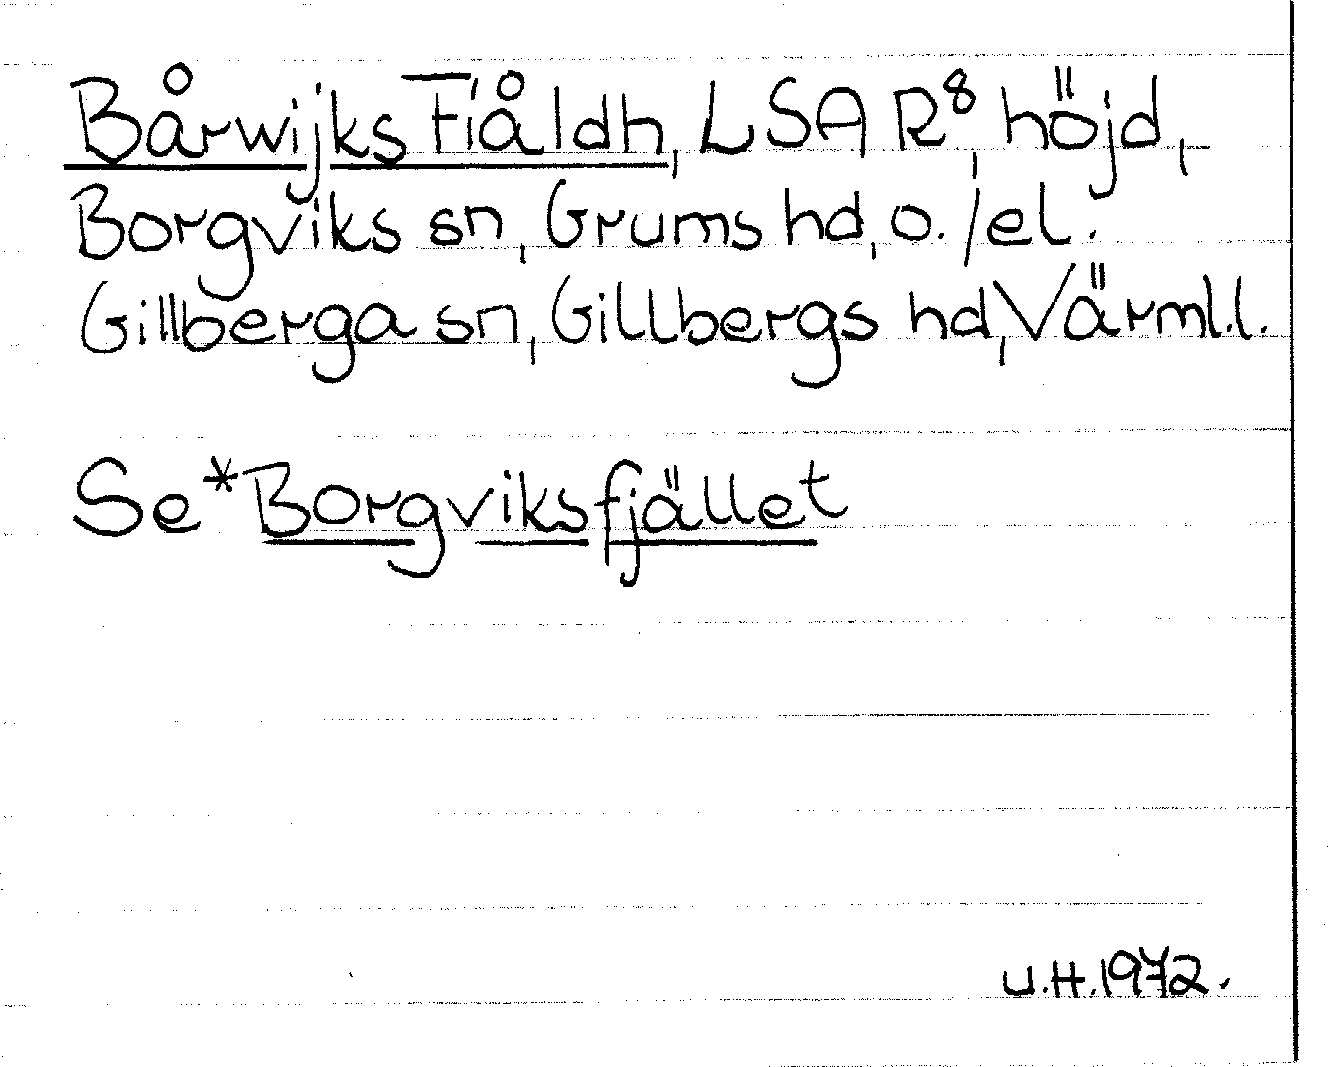 Bårwijks Fiåldh, LSA R⁸, höjd,
Borgviks sn, Grums hd, o./el.
Gillberga sn, Gillbergs hd, Värml.l.
Se *Borgviksfjället
U.H.1972.